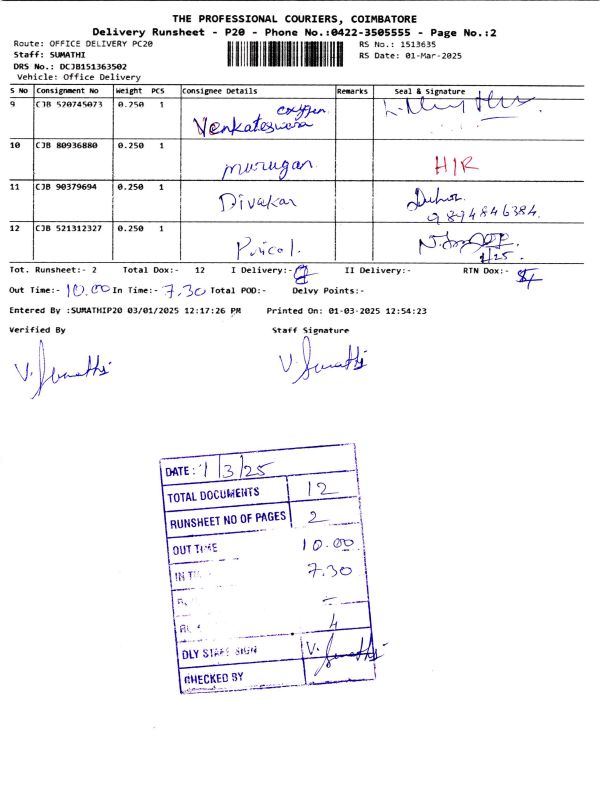 THE PROFESSIONAL COURIERS, COIMBATORE
Delivery Runsheet - P20 - Phone No.:0422-3505555 - Page No.:2
Route: OFFICE DELIVERY PC20 RS No.: 1513635
Staff: SUMATHI RS Date: 01-Mar-2025
DRS No.: DCJB151363502
Vehicle: Office Delivery
S No Consignment No Weight PCS Consignee Details Remarks Seal & Signature
9 CJB 520745073 0.250 1 Venkateswara
10 CJB 80936880 0.250 1 murugan H/R
11 CJB 90379694 0.250 1 Divakar
9894846384.
12 CJB 521312327 0.250 1 Pricol.
Tot. Runsheet:- 2 Total Dox:- 12 I Delivery:- II Delivery:- RTN Dox:-
Out Time:- 10.00 In Time:- 7.30 Total POD:- Delvy Points:-
Entered By :SUMATHIP20 03/01/2025 12:17:26 PM Printed On: 01-03-2025 12:54:23
Verified By Staff Signature
V. Sumathi V. Sumathi
DATE: 1/3/25
TOTAL DOCUMENTS 12
RUNSHEET NO OF PAGES 2
OUT TIME 10.00
IN 7.30
-
4
DLY STAFF SIGN V. Sumathi
CHECKED BY